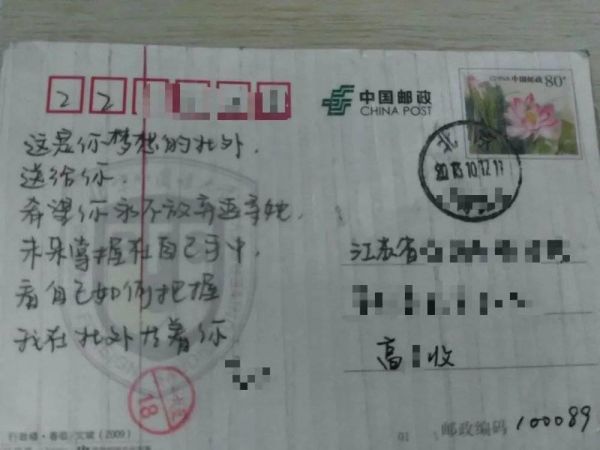 2 2
中国邮政
CHINA POST
CHINA 中国邮政 80分
北京
2013.10.12.17
这是你梦想的北外.
送给你.
希望你永不放弃追寻她.
未来掌握在自己手中.
看自己如何把握
我在北外等着你.
江苏省
高 收
18
行政楼·春临/文斌(2009)
01
邮政编码 100089